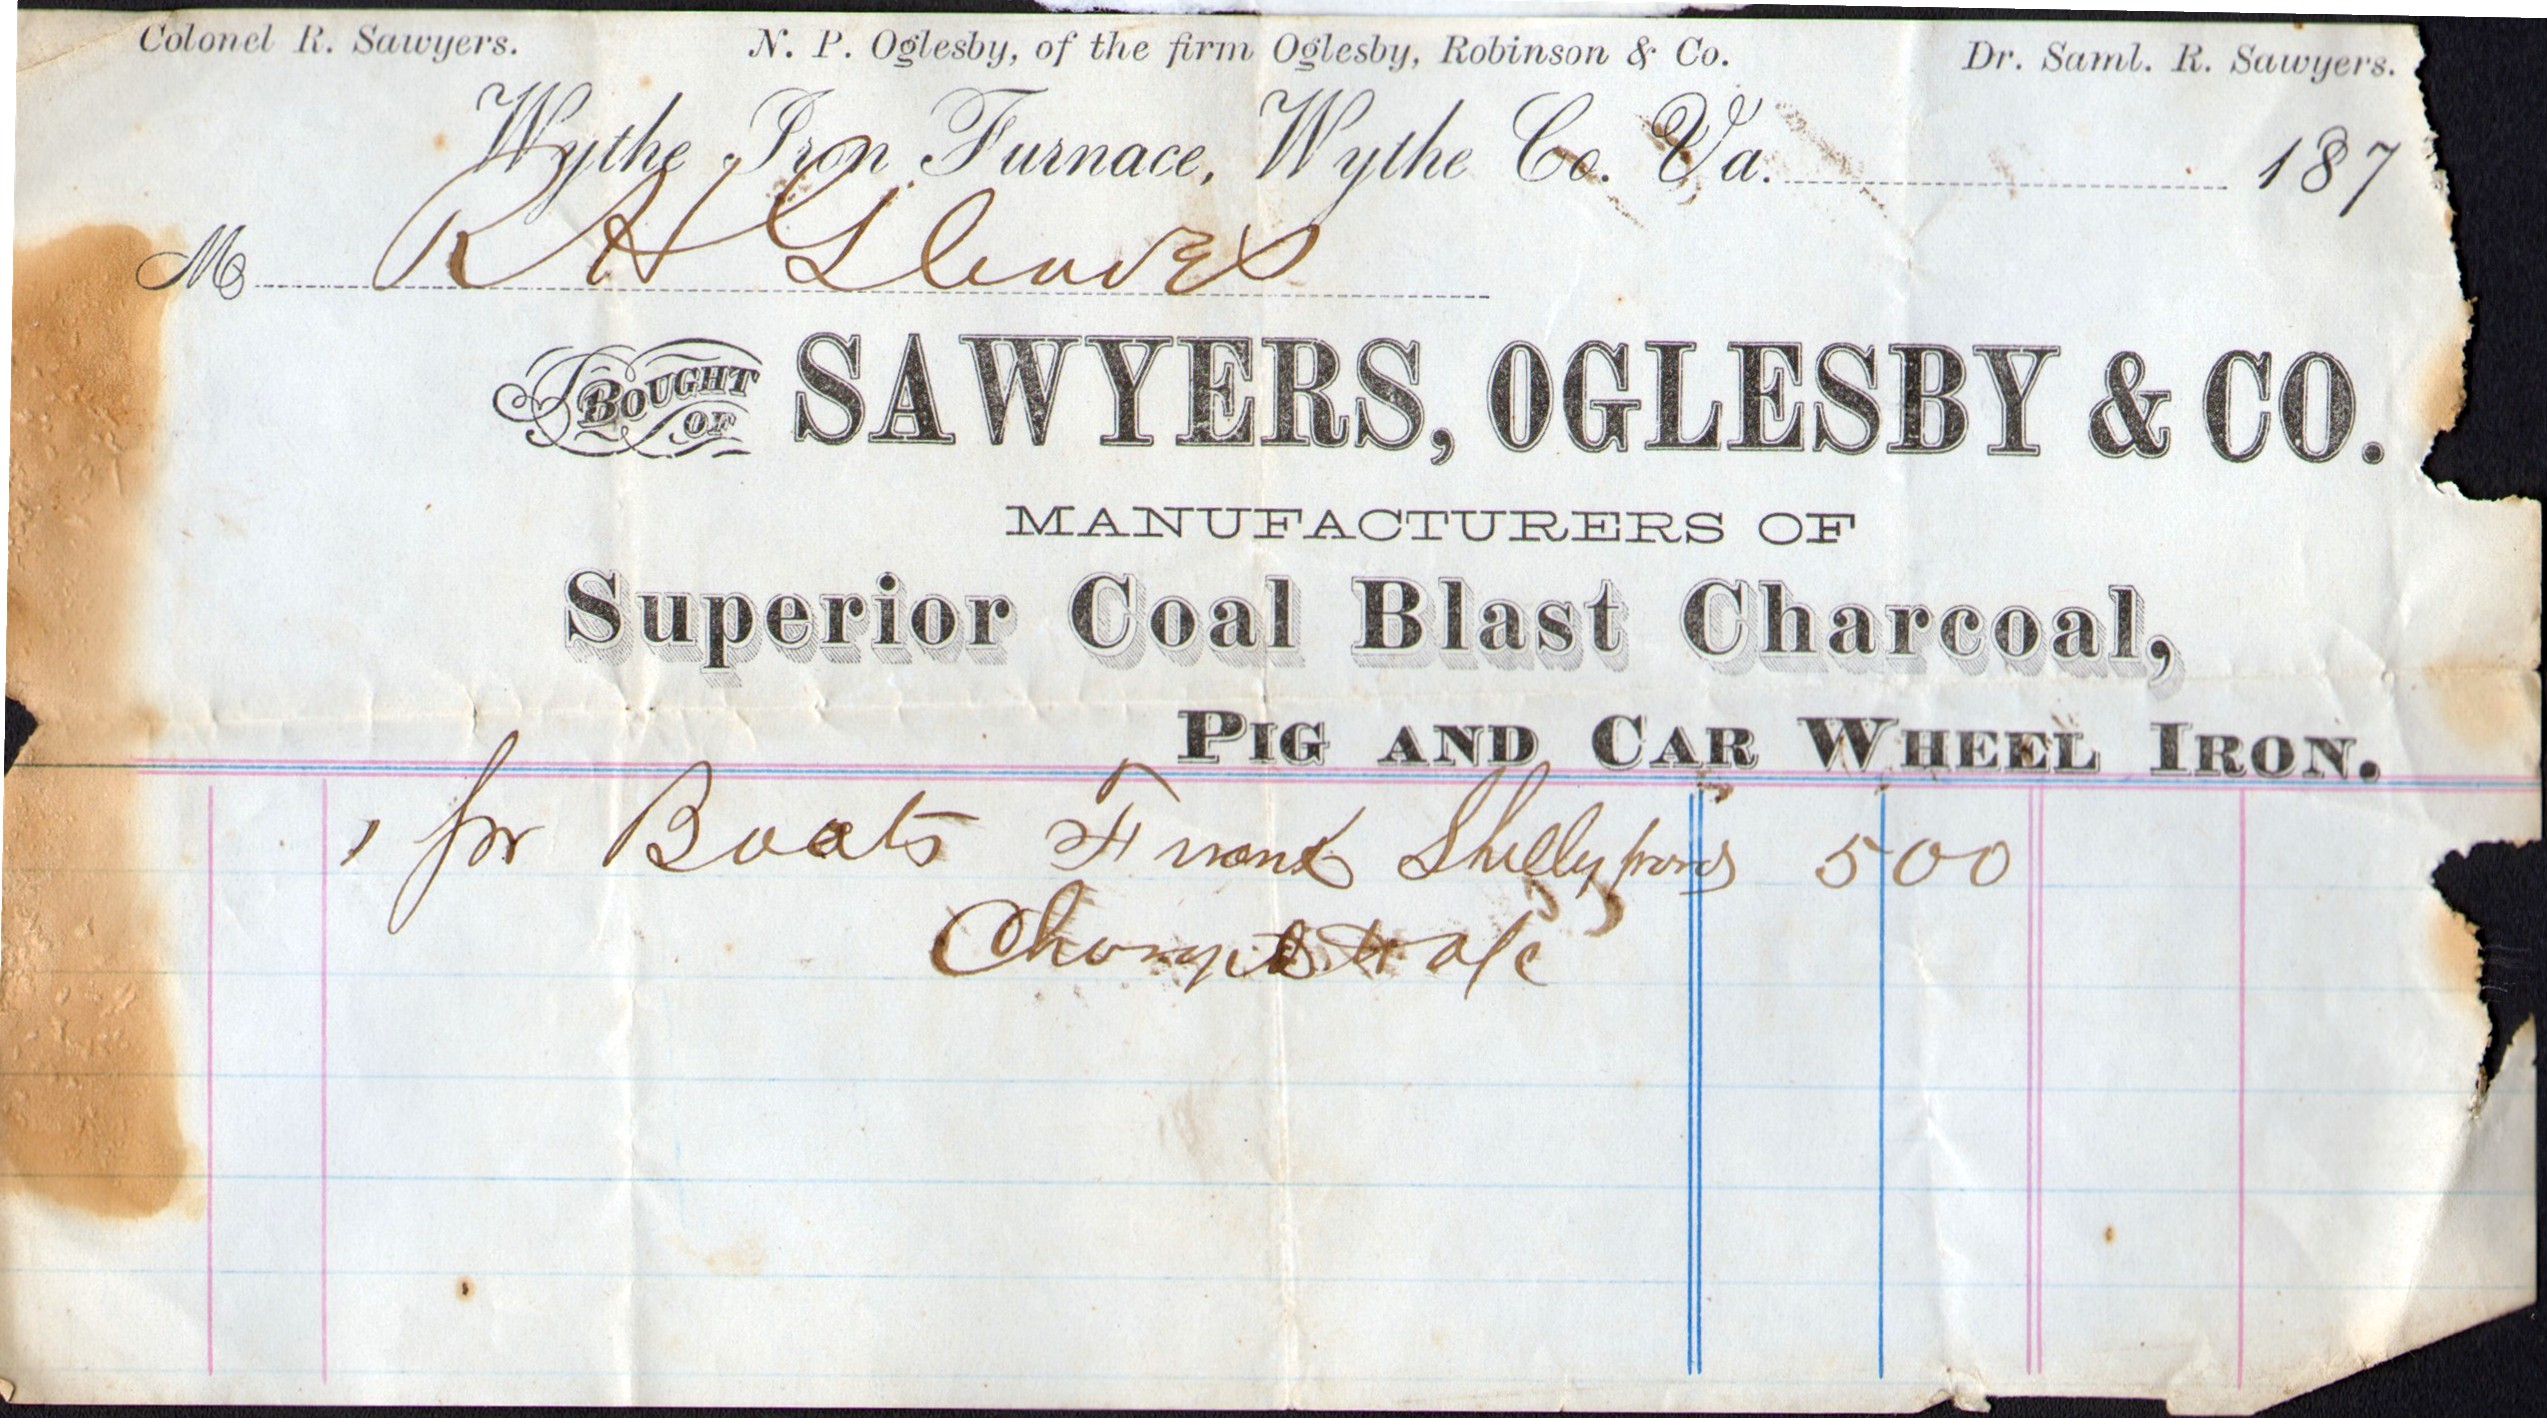 Colonel R. Sawyers. N. P. Oglesby, of the firm Oglesby, Robinson & Co. Dr. Saml. R. Sawyers.
Wythe Iron Furnace, Wythe Co. Va. 187
M R H Gleaves
BOUGHT OF SAWYERS, OGLESBY & CO.
MANUFACTURERS OF
Superior Coal Blast Charcoal,
PIG AND CAR WHEEL IRON.
1 pr Boots Frank Shelly 500
Charge to a/c